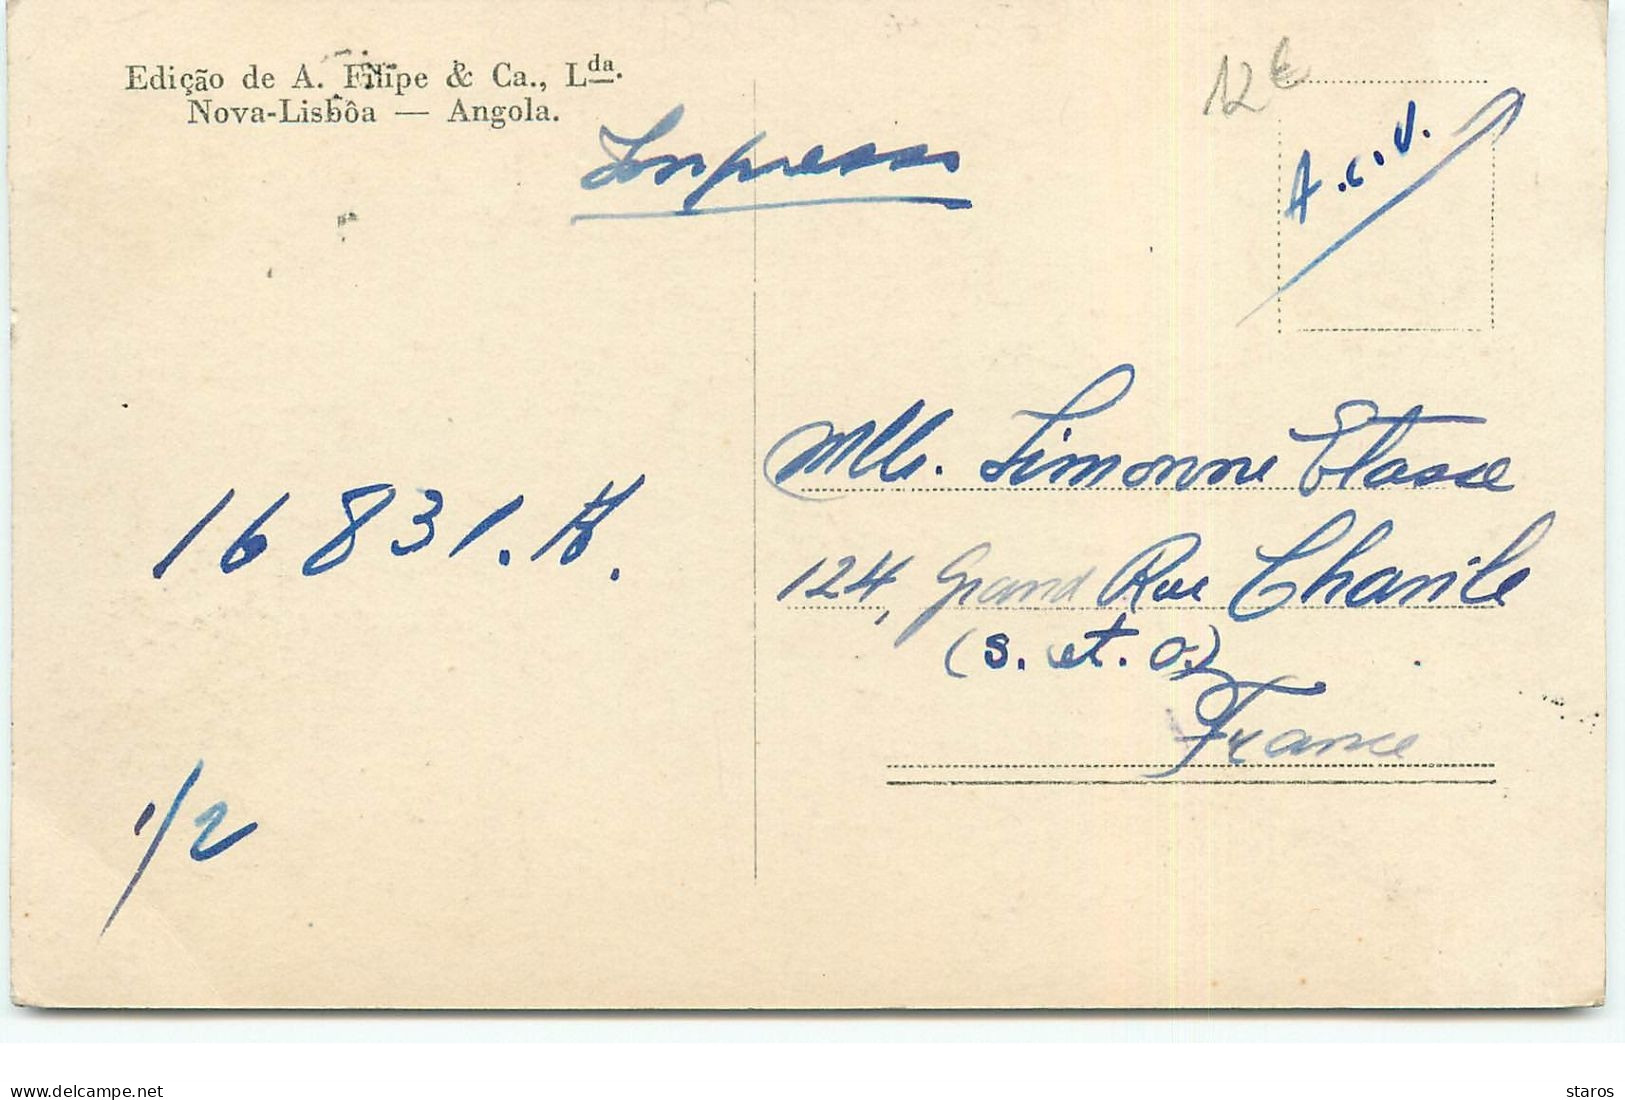 Edição de A. Filipe & Ca., Lda.
Nova-Lisbôa — Angola.
Impresso
12€
A.C.V.
Mlle. Simonne Etasse
124, Grand Rue Charile
(S. et. O.)
France
16831.H.
1/2
www.delcampe.net
staros